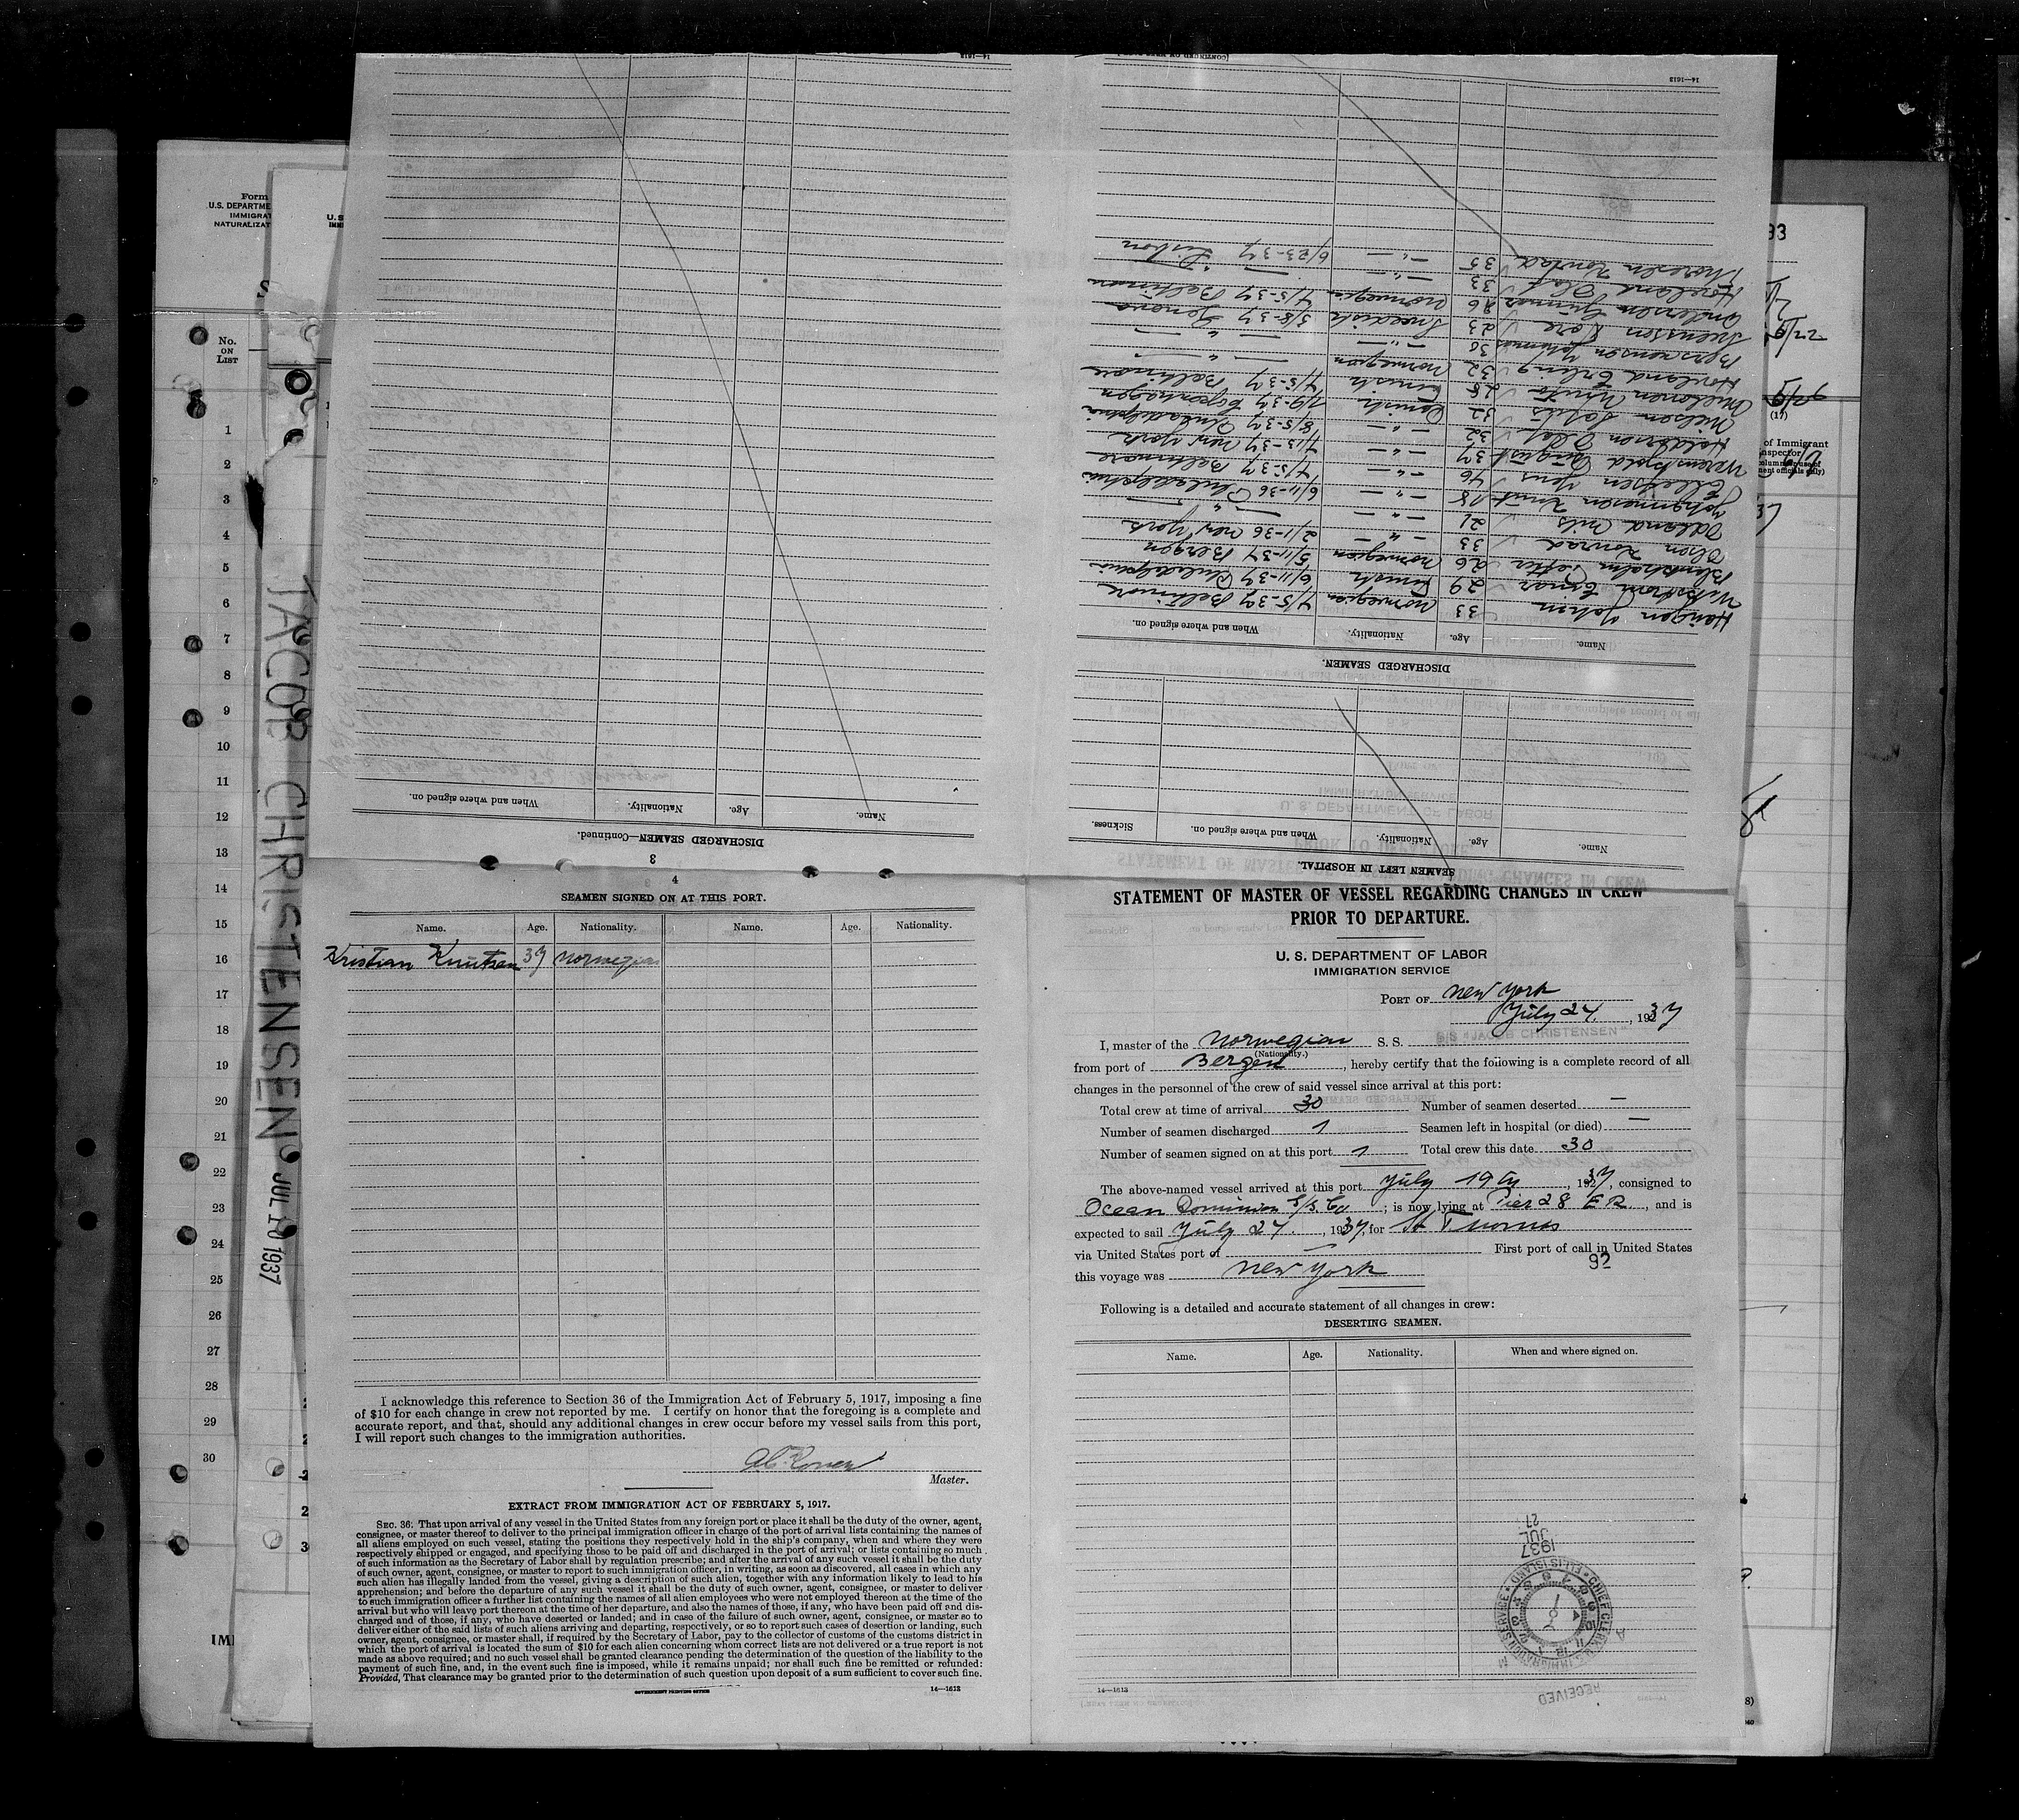 STATEMENT OF MASTER OF VESSEL REGARDING CHANGES IN CREW
PRIOR TO DEPARTURE.
U. S. DEPARTMENT OF LABOR
IMMIGRATION SERVICE
PORT OF New York
July 24, 1937
I, master of the Norwegian S. S. S/S "JACOB CHRISTENSEN"
(Nationality.)
from port of Bergen, hereby certify that the following is a complete record of all
changes in the personnel of the crew of said vessel since arrival at this port:
Total crew at time of arrival 30 Number of seamen deserted —
Number of seamen discharged 1 Seamen left in hospital (or died) —
Number of seamen signed on at this port 1 Total crew this date 30
The above-named vessel arrived at this port July 19th, 1937, consigned to
Ocean Dominion S/S. Co; is now lying at Pier 28 E R, and is
expected to sail July 24, 1937, for St Thomas
via United States port of — First port of call in United States
this voyage was New York
Following is a detailed and accurate statement of all changes in crew:
DESERTING SEAMEN.
Name. Age. Nationality. When and where signed on.
RECEIVED
CHIEF CLERK
ELLIS ISLAND
1937
JUL
27
14—1613
SEAMEN LEFT IN HOSPITAL.
Name. Age. Nationality. When and where signed on. Sickness.
DISCHARGED SEAMEN.
Name. Age. Nationality. When and where signed on.
Haugen Johan 33 Norwegian 4/5-37 Baltimore
Einar 29 Finnish 6/11-37 Philadelphia
Petter 26 Norwegian 5/11-37 Bergen
Olsen Konrad 33 -"- 2/11-36 New York
Odland Nils 21 -"- -"-
Johannesen Knut 18 -"- 6/11-36 Philadelphia
Jens 46 -"- 4/5-37 Baltimore
August 37 -"- 1/13-37 New York
Olaf 32 -"- 8/5-37 Philadelphia
Nielsen 32 Danish 1/9-37 Copenhagen
25 Finnish 4/5-37 Baltimore
Hovland Erling 32 Norwegian -"-
Johannes 30 -"- -"-
Svensson Kåre 23 Swedish 5/8-37 Genova
Andersen Gunnar 26 Norwegian 4/5-37 Baltimore
Høveland Olaf 33 -"- -"-
Thoresen Konrad 35 -"- 6/23-37 Lisbon
14—1613
3
DISCHARGED SEAMEN—Continued.
Name. Age. Nationality. When and where signed on.
14—1613
4
SEAMEN SIGNED ON AT THIS PORT.
Name. Age. Nationality. Name. Age. Nationality.
Kristian Knutsen 37 Norwegian
I acknowledge this reference to Section 36 of the Immigration Act of February 5, 1917, imposing a fine
of $10 for each change in crew not reported by me. I certify on honor that the foregoing is a complete and
accurate report, and that, should any additional changes in crew occur before my vessel sails from this port,
I will report such changes to the immigration authorities.
Master.
EXTRACT FROM IMMIGRATION ACT OF FEBRUARY 5, 1917.
SEC. 36. That upon arrival of any vessel in the United States from any foreign port or place it shall be the duty of the owner, agent,
consignee, or master thereof to deliver to the principal immigration officer in charge of the port of arrival lists containing the names of
all aliens employed on such vessel, stating the positions they respectively hold in the ship's company, when and where they were
respectively shipped or engaged, and specifying those to be paid off and discharged in the port of arrival; or lists containing so much
of such information as the Secretary of Labor shall by regulation prescribe; and after the arrival of any such vessel it shall be the duty
of such owner, agent, consignee, or master to report to such immigration officer, in writing, as soon as discovered, all cases in which any
such alien has illegally landed from the vessel, giving a description of such alien, together with any information likely to lead to his
apprehension; and before the departure of any such vessel it shall be the duty of such owner, agent, consignee, or master to deliver
to such immigration officer a further list containing the names of all alien employees who were not employed thereon at the time of the
arrival but who will leave port thereon at the time of her departure, and also the names of those, if any, who have been paid off and dis-
charged and of those, if any, who have deserted or landed; and in case of the failure of such owner, agent, consignee, or master so to
deliver either of the said lists of such aliens arriving and departing, respectively, or so to report such cases of desertion or landing, such
owner, agent, consignee, or master shall, if required by the Secretary of Labor, pay to the collector of customs of the customs district in
which the port of arrival is located the sum of $10 for each alien concerning whom correct lists are not delivered or a true report is not
made as above required; and no such vessel shall be granted clearance pending the determination of the question of the liability to the
payment of such fine, and, in the event such fine is imposed, while it remains unpaid; nor shall such fine be remitted or refunded:
Provided, That clearance may be granted prior to the determination of such question upon deposit of a sum sufficient to cover such fine.
GOVERNMENT PRINTING OFFICE
14—1613
CHRISTENSEN
JUL 19 1937
Form
U.S. DEPARTME
IMMIGRAT
NATURALIZAT
No.
ON
LIST
1
2
3
4
5
6
7
8
9
10
11
12
13
14
15
16
17
18
19
20
21
22
23
24
25
26
27
28
29
30
(17)
of Immigrant